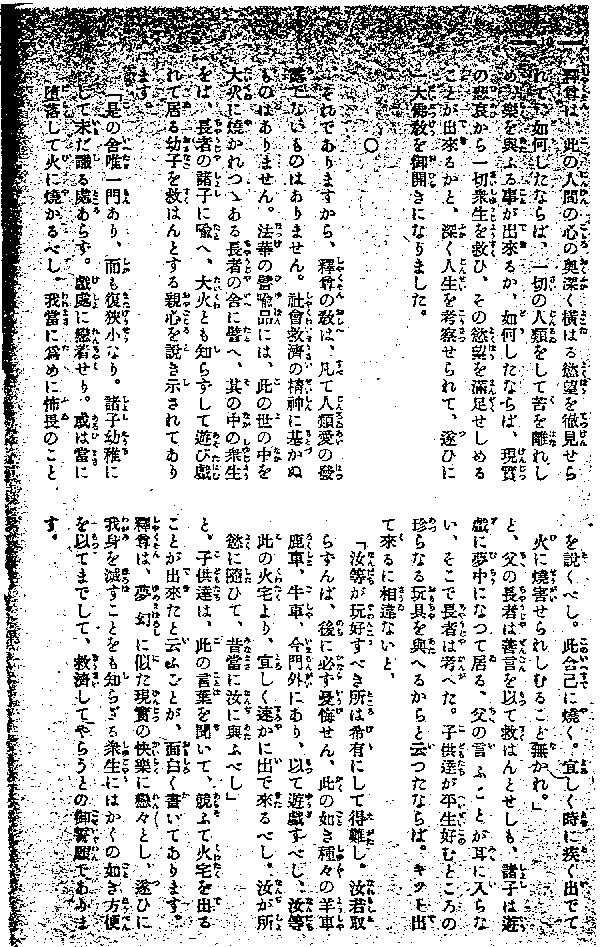 釋尊は、此の人間の心の奥深く横はる慾望を徹見せら
れて、如何したならば、一切の人類をして苦を離れし
め、樂を與ふる事が出來るか、如何したならば、現實
の悲哀から一切衆生を救ひ、その慾望を滿足せしめる
ことが出來るかと、深く人生を考察せられて、遂ひに
大佛敎を御開きになりました。
○
それでありますから、釋尊の敎は、凡て人類愛の發
露でないものはありません。社會救濟の精神に基かぬ
ものはありません。法華の譬喩品には、此の世の中を
大火に燒かれつゝある長者の舍に譬へ、其の中の衆生
をば、長者の諸子に喩へ、大火とも知らずして遊び戲
れて居る幼子を救はんとする親心を說き示されてあり
ます。
「是の舍唯一門あり、而も復狹小なり。諸子幼稚に
して未だ識る處あらず。戲處に戀著せり。或は當に
墮落して火に燒かるべし。我當に爲めに怖畏のこと
を說くべし。此舍已に燒く。宜しく時に疾く出でて
火に燒害せられしむること無かれ。」
と、父の長者は善言を以て救はんとせしも、諸子は遊
戲に夢中になつて居る、父の言ふことが耳に入らな
い、そこで長者は考へた。子供達が平生好むところの
珍らなる玩具を與へるからと云つたならば、キツト出
て來るに相違ないと、
「汝等が玩好すべき所は希有にして得難し。汝若取
らずんば、後に必ず憂悔せん、此の如き種々の羊車
鹿車、牛車、今門外にあり、以て遊戲すべし、汝等
此の火宅より、宜しく速かに出で來るべし。汝が所
慾に隨ひて、皆當に汝に與ふべし」
と、子供達は、此の言葉を聞いて、競ふて火宅を出る
ことが出來たと云ふことが、面白く書いてあります。
釋尊は、夢幻に似た現實の快樂に戀々とし、遂ひに
我身を滅すことをも知らざる衆生にはかくの如き方便
を以てまでして、救濟してやらうとの御誓願でありま
す。